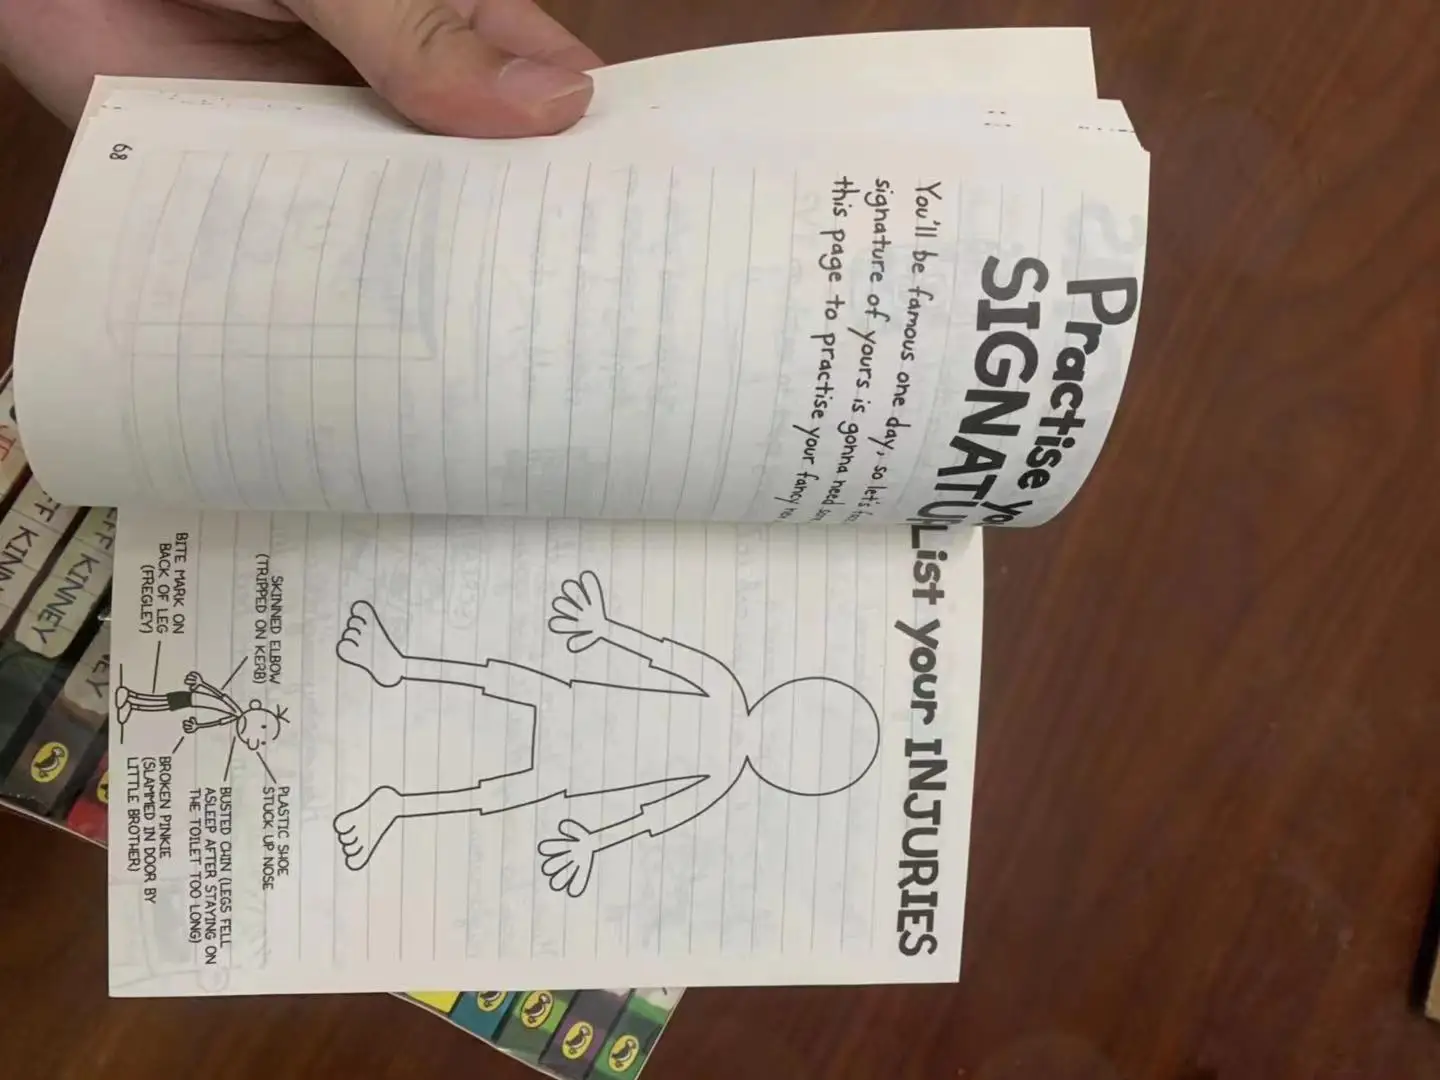 Practise yo
SIGNATU
You'll be famous one day, so let's
signature of yours is gonna need
this page to practise your fancy
68
List your INJURIES
SKINNED ELBOW
(TRIPPED ON KERB)
BITE MARK ON
BACK OF LEG
(FREGLEY)
PLASTIC SHOE
STUCK UP NOSE
BUSTED CHIN (LEGS FELL
ASLEEP AFTER STAYING ON
THE TOILET TOO LONG)
BROKEN PINKIE
(SLAMMED IN DOOR BY
LITTLE BROTHER)
FF KINNEY
FF KINNEY
EY